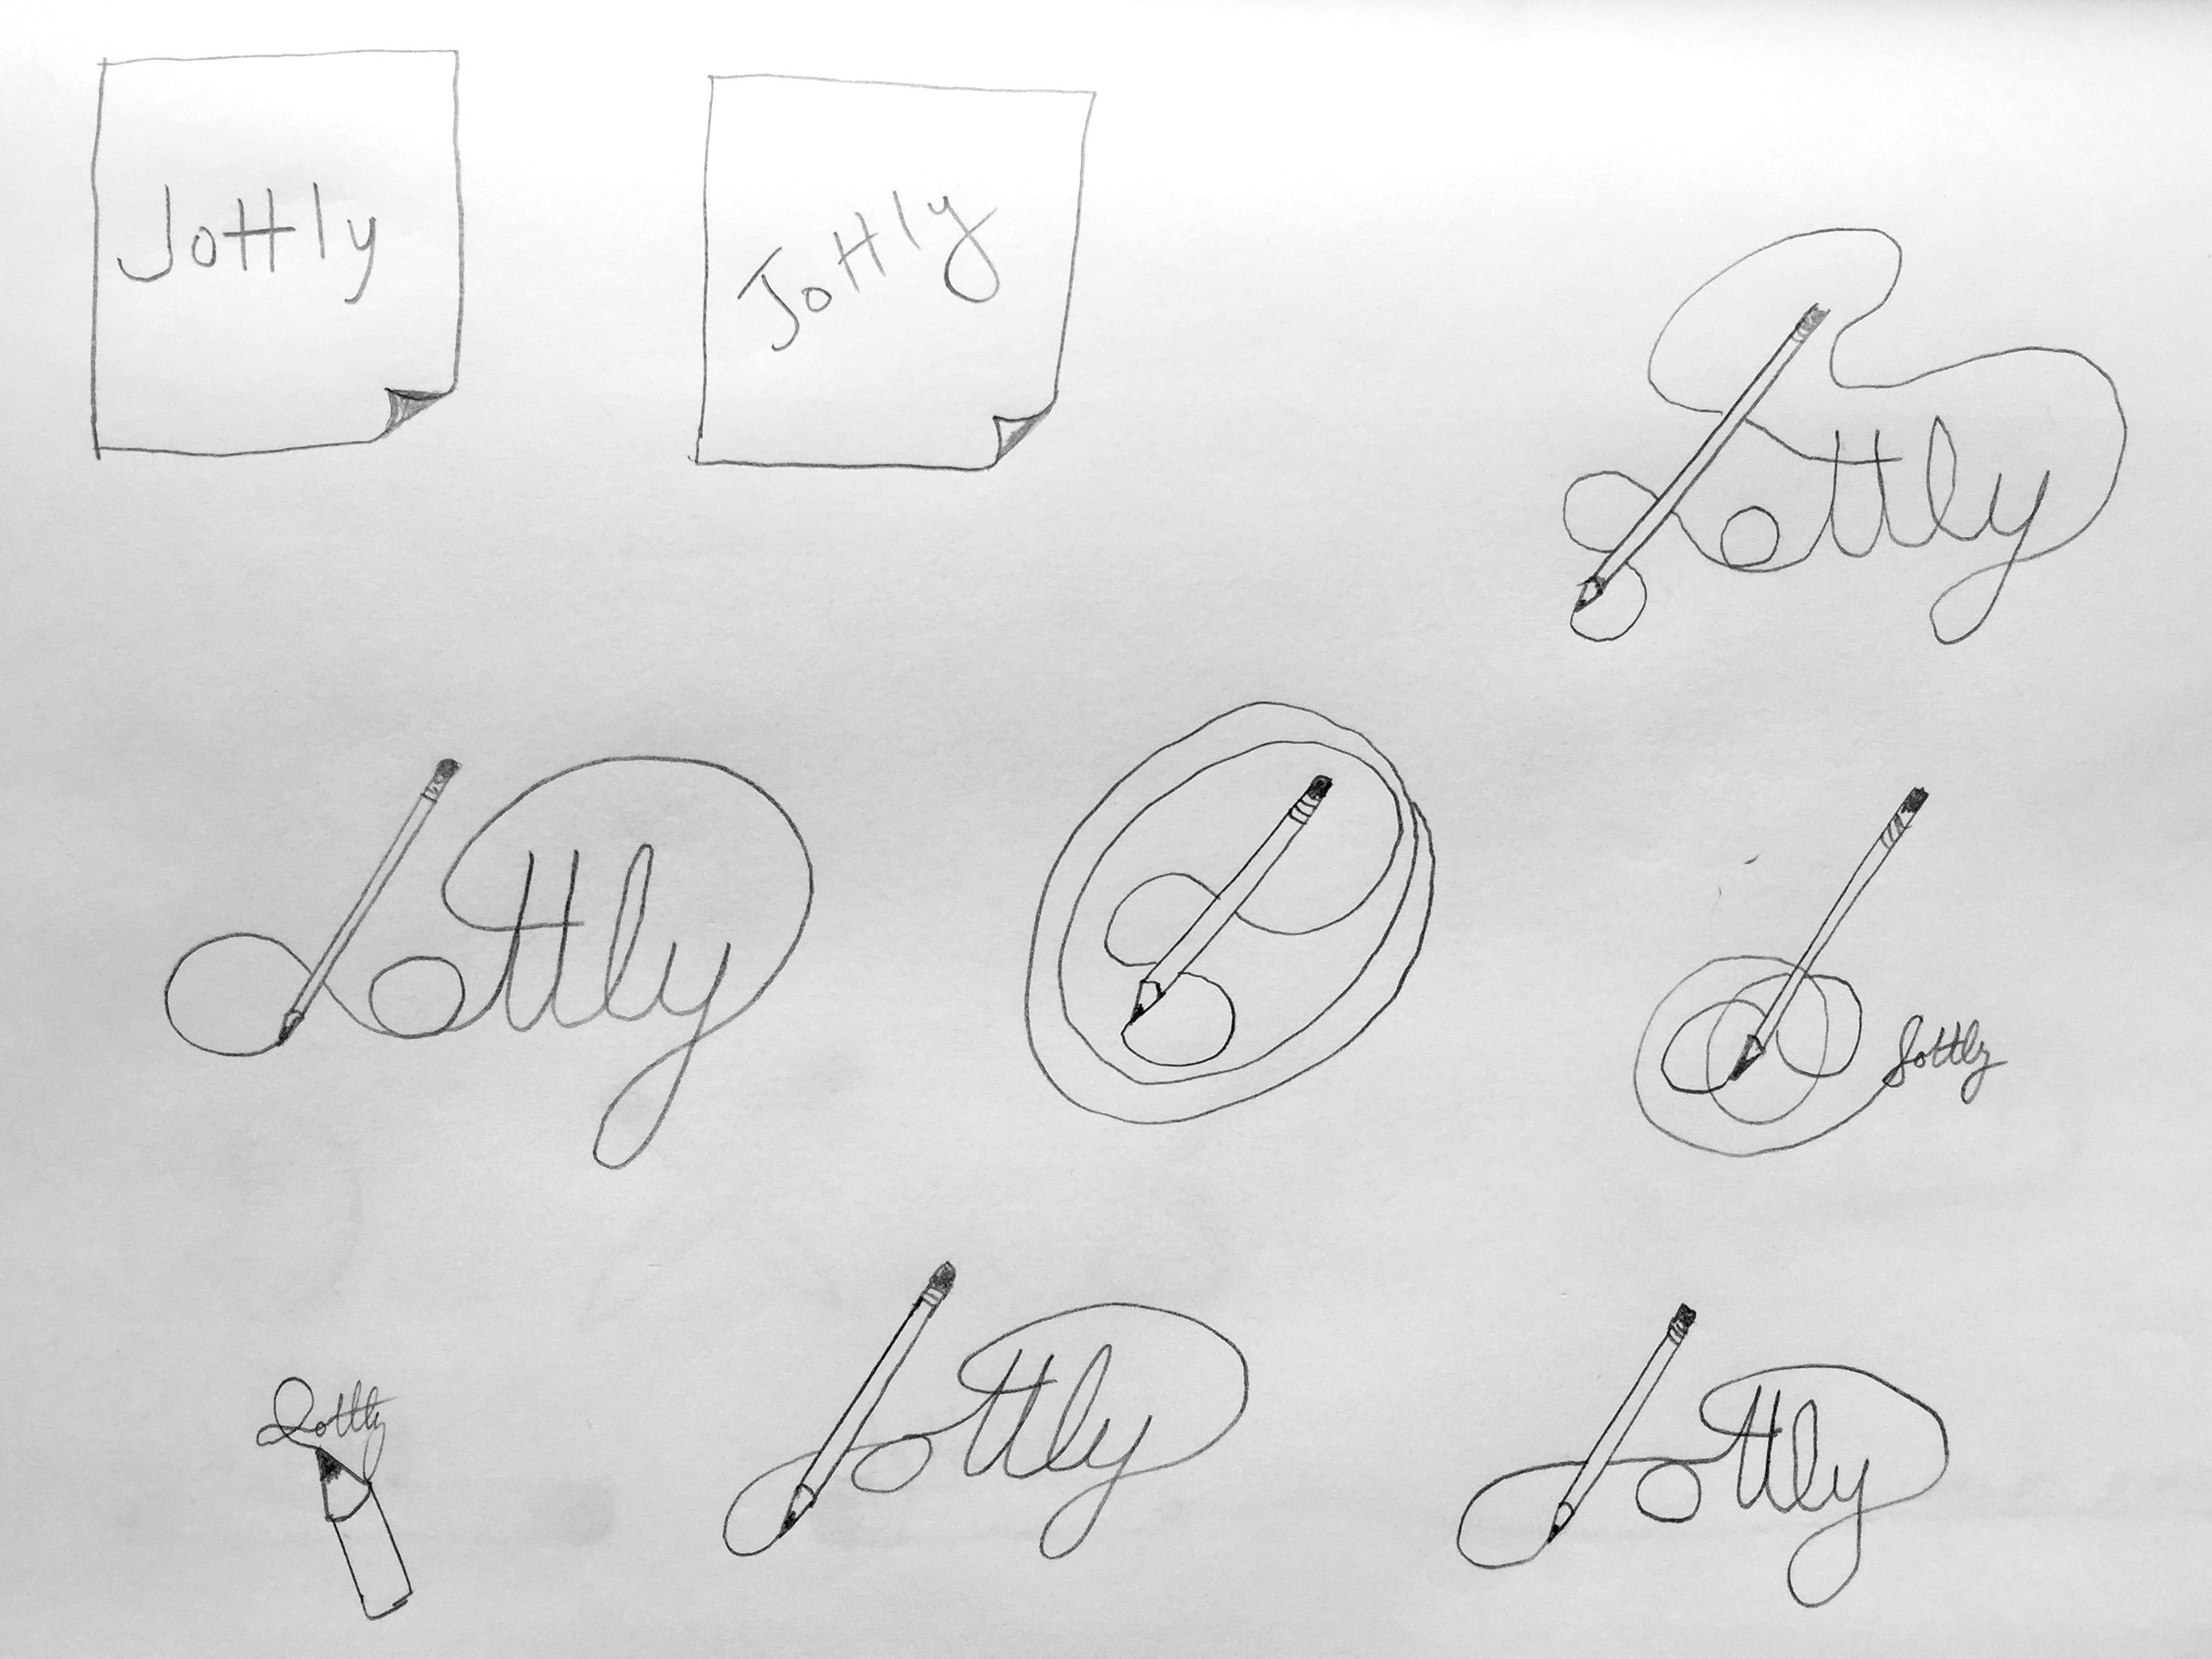 Jottly
Jottly
Jottly
Jottly
Jottly
Jottly
Jottly
Jottly